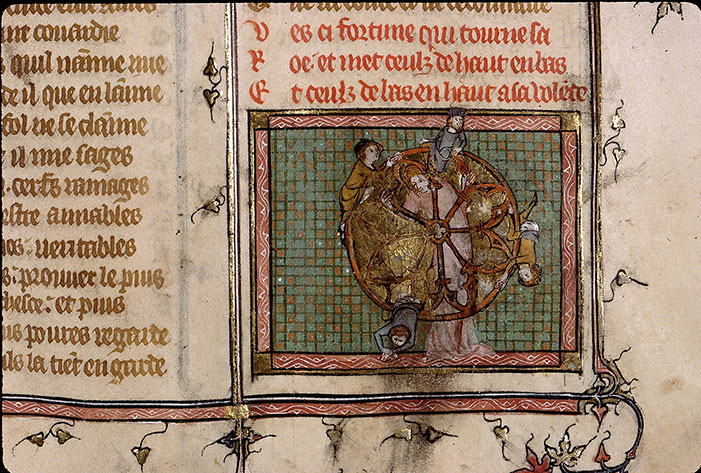 nt couardie
quil nainme mie
de il que en lainme
fol ne se claime
il mie sages
cerfs ramages
estre amables
veritables
prouver le puis
et puis
uis poures regarde
ils la tient en garde
V es ci fortune qui tourne sa
R oe et met ceulz de haut en bas
E t ceulz de bas en haut a sa volete